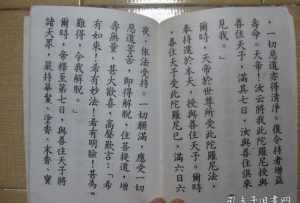 ，一切惡道亦得清淨。復令持者增益
壽命。天帝！汝去將我此陀羅尼授與
善住天子，滿其七日，汝與善住俱來
見我。」
爾時，天帝於世尊所受此陀羅尼法，
奉持還於本天，授與善住天子。爾時
，善住天子受此陀羅尼已，滿六日六
夜，依法受持。一切願滿，應受一切
惡道等苦，即得解脫，住菩提道，增
壽無量，甚大歡喜，高聲歎言：「希
有如來！希有妙法！希有明驗！甚為
難得，令我解脫。」
爾時，帝釋至第七日，與善住天子將
諸天眾，嚴持華鬘、塗香、末香、寶
孔夫子旧书网